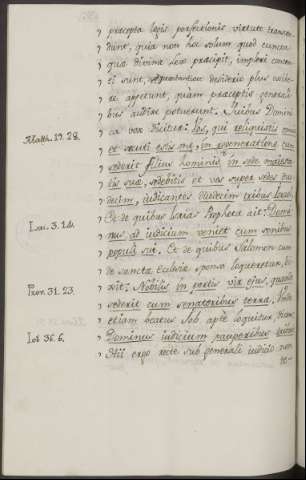 præcepta legis perfectionis virtute transcen
dunt, quia non hæ solum quod cunctis
qua divina lex præcipit, implere conten
ti sunt, desiderio plus exibe
re appetunt, quam præceptis generali
bus audire potuerunt. Quibus Domini
ca vox dicitur: Vos, qui reliquistis omnia
et secuti estis me, in regeneratione cum
Matth. 19. 28.
sederit filius hominis in sede majesta
tis suæ, sedebitis et vos super sedes duo
decim, judicantes duodecim tribus Israel.
Et de quibus Isaias Propheta ait: Domi
Isai. 3. 14.
nus ad judicium veniet cum senibus
populi sui. Et de quibus Salomon cum
de sancta Ecclesia sponso loqueretur, di
xit: Nobilis in portis vir ejus, quando
Prov. 31. 23.
sederit cum senatoribus terræ. Unde
etiam beatus Job apte loquitur, dicens:
Dominus judicium pauperibus
Job 36. 6.
Hii ergo recte sub generali judicio non
te-